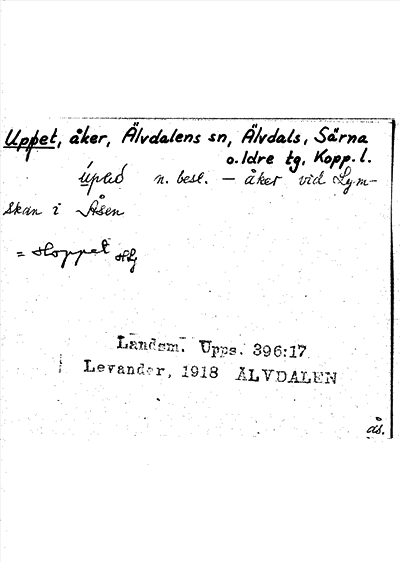 Uppet, åker, Älvdalens sn, Älvdals, Särna
o. Idre tg, Kopp. l.
n. best. – åker vid Lym-
skan i Åsen
= Hoppet
Landsm. Upps. 396:17
Levander, 1918 ÄLVDALEN
ås.